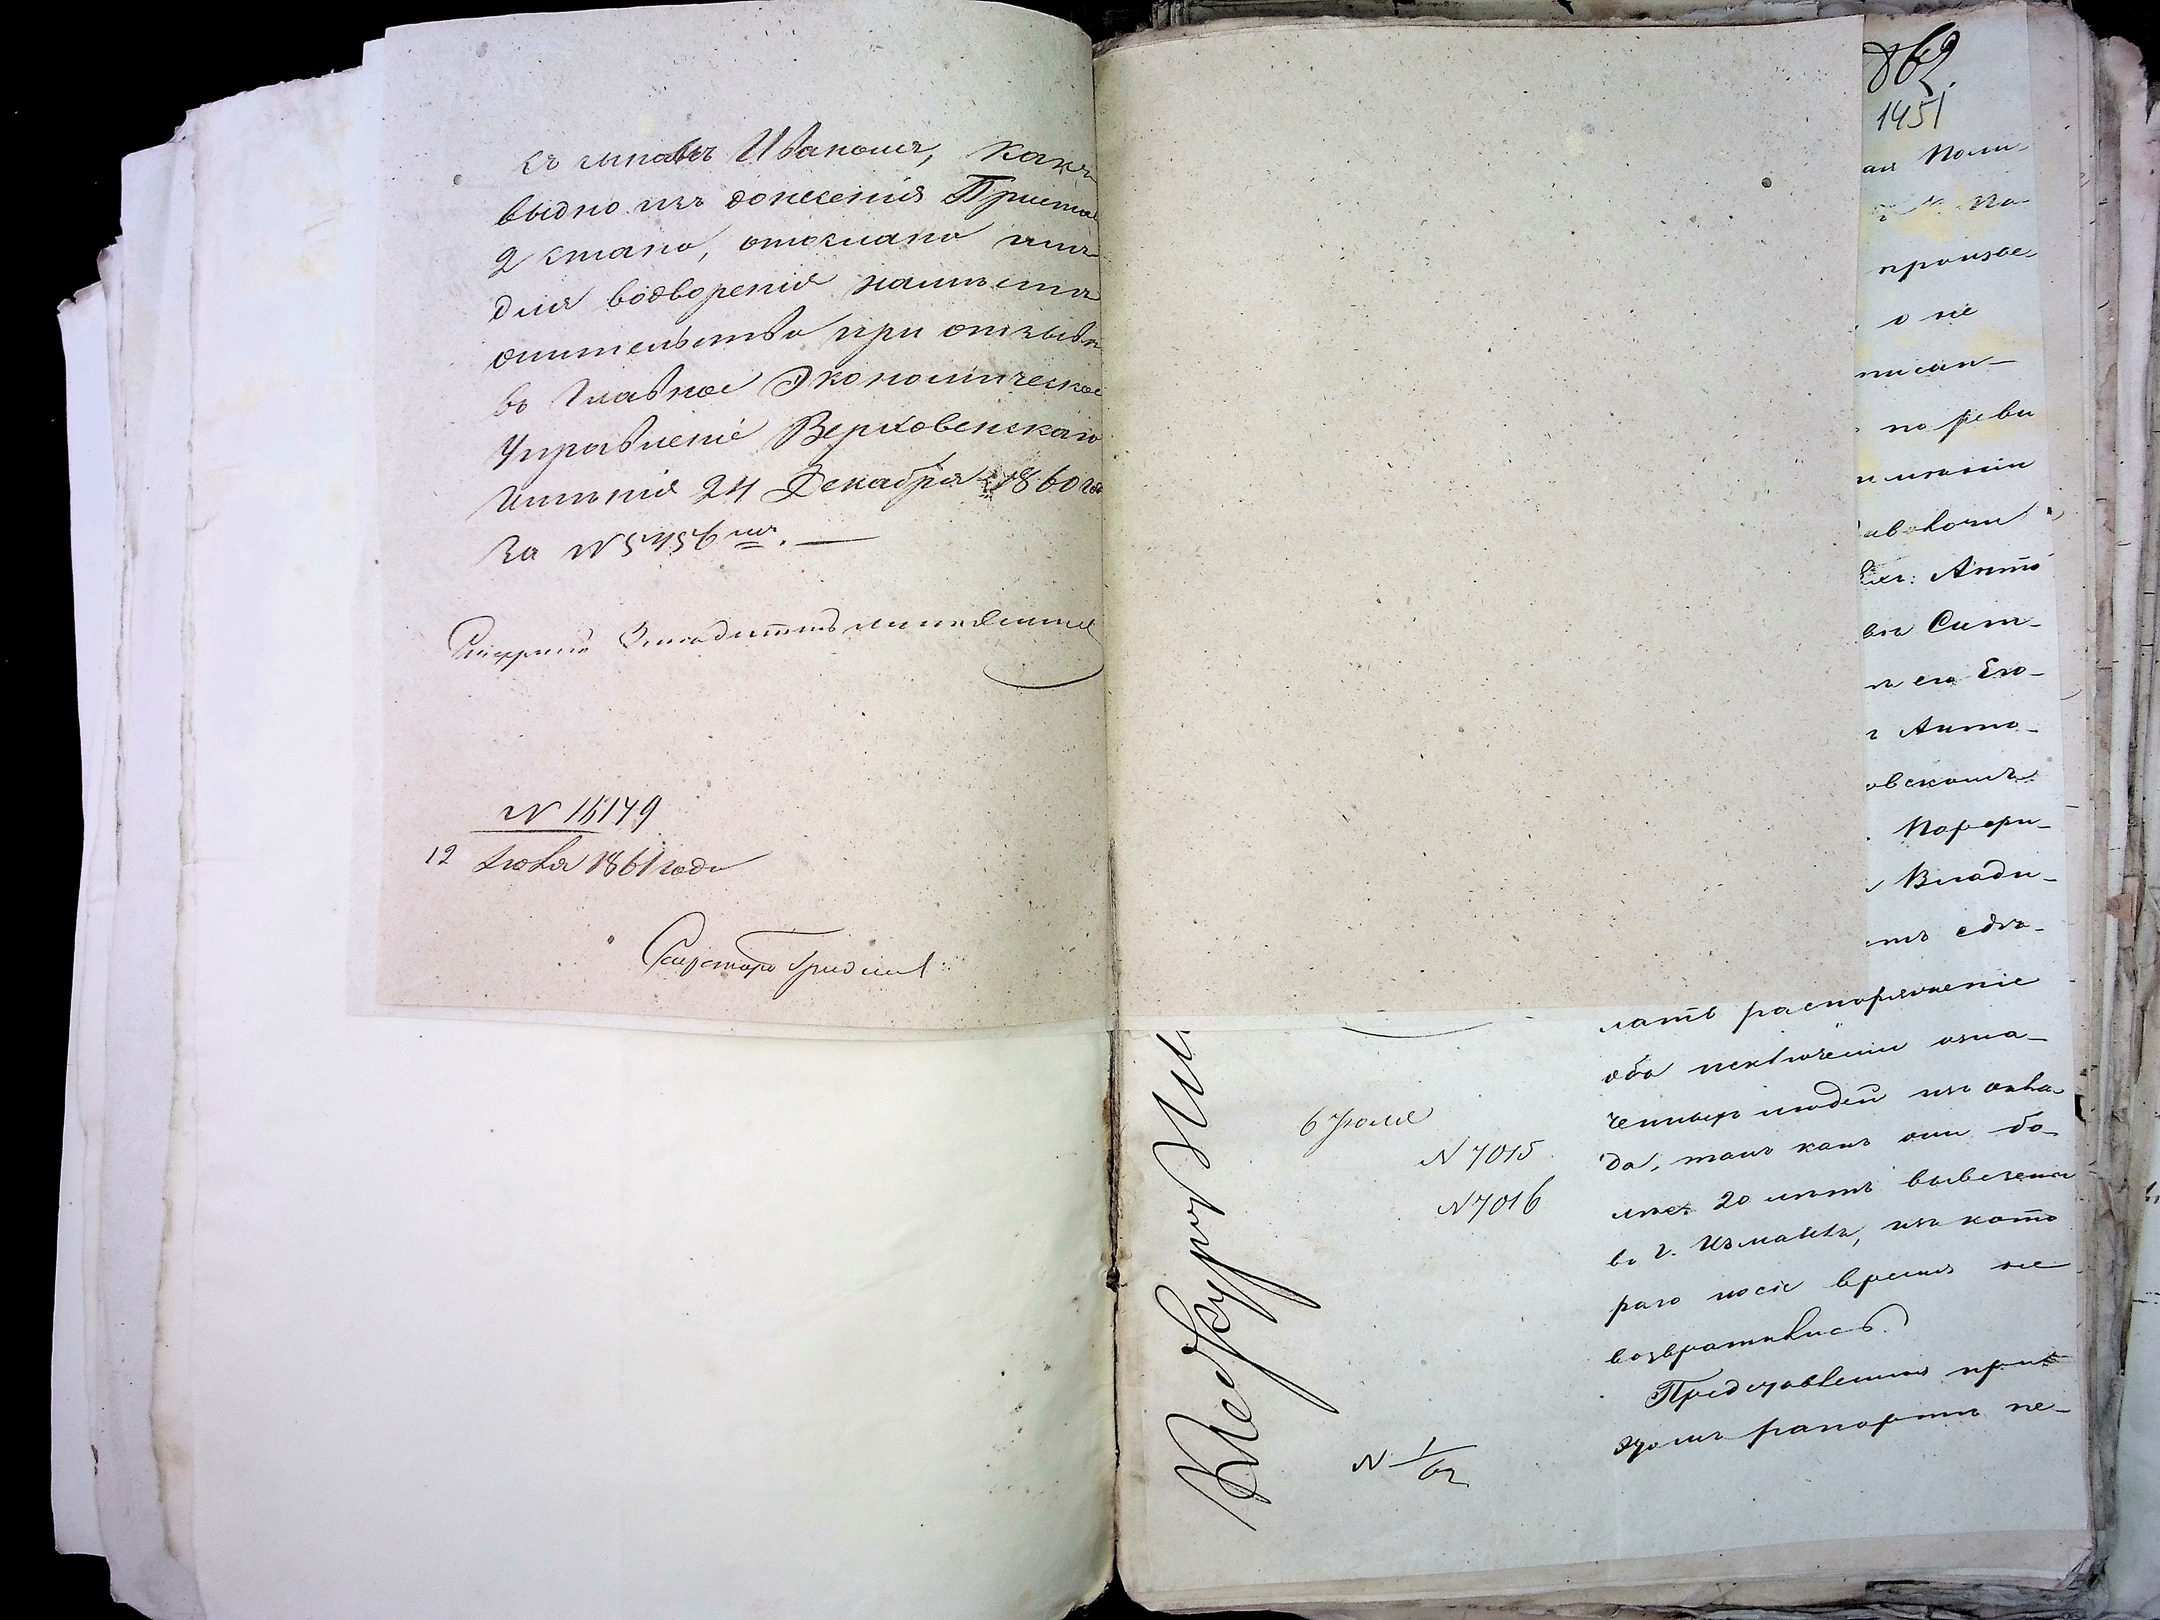 съ сыномъ Иваномъ, какъ
видно изъ донесенія Пристав
2 стана, отослана имъ
для водворенія намѣстѣ
жительства при отзывѣ
въ Главное Экономическое
Управленіе Верховенскаго
Имѣнія 24 Декабря 1860 го
За № 5456 мъ. —
№ 16149
12 Іюля 1861 года
Секретарь
862.
1451
ая Поли-
На-
произве-
о не
писан-
по реви
имѣніи
Анто
Сит-
его Его-
Анто-
овскомъ
Порфи-
Влади-
етъ сдѣ-
лать распоряженіе
объ исключеніи озна-
ченныхъ людей изъ окла-
да, такъ какъ они бо-
лѣе 20 лѣтъ вывезены
въ г. Измаилъ, изъ кото
раго посіе время не
возвратились.
Представленный при
этомъ рапортъ не-
6 Іюля
№ 7015
№ 7016
№ 1/62